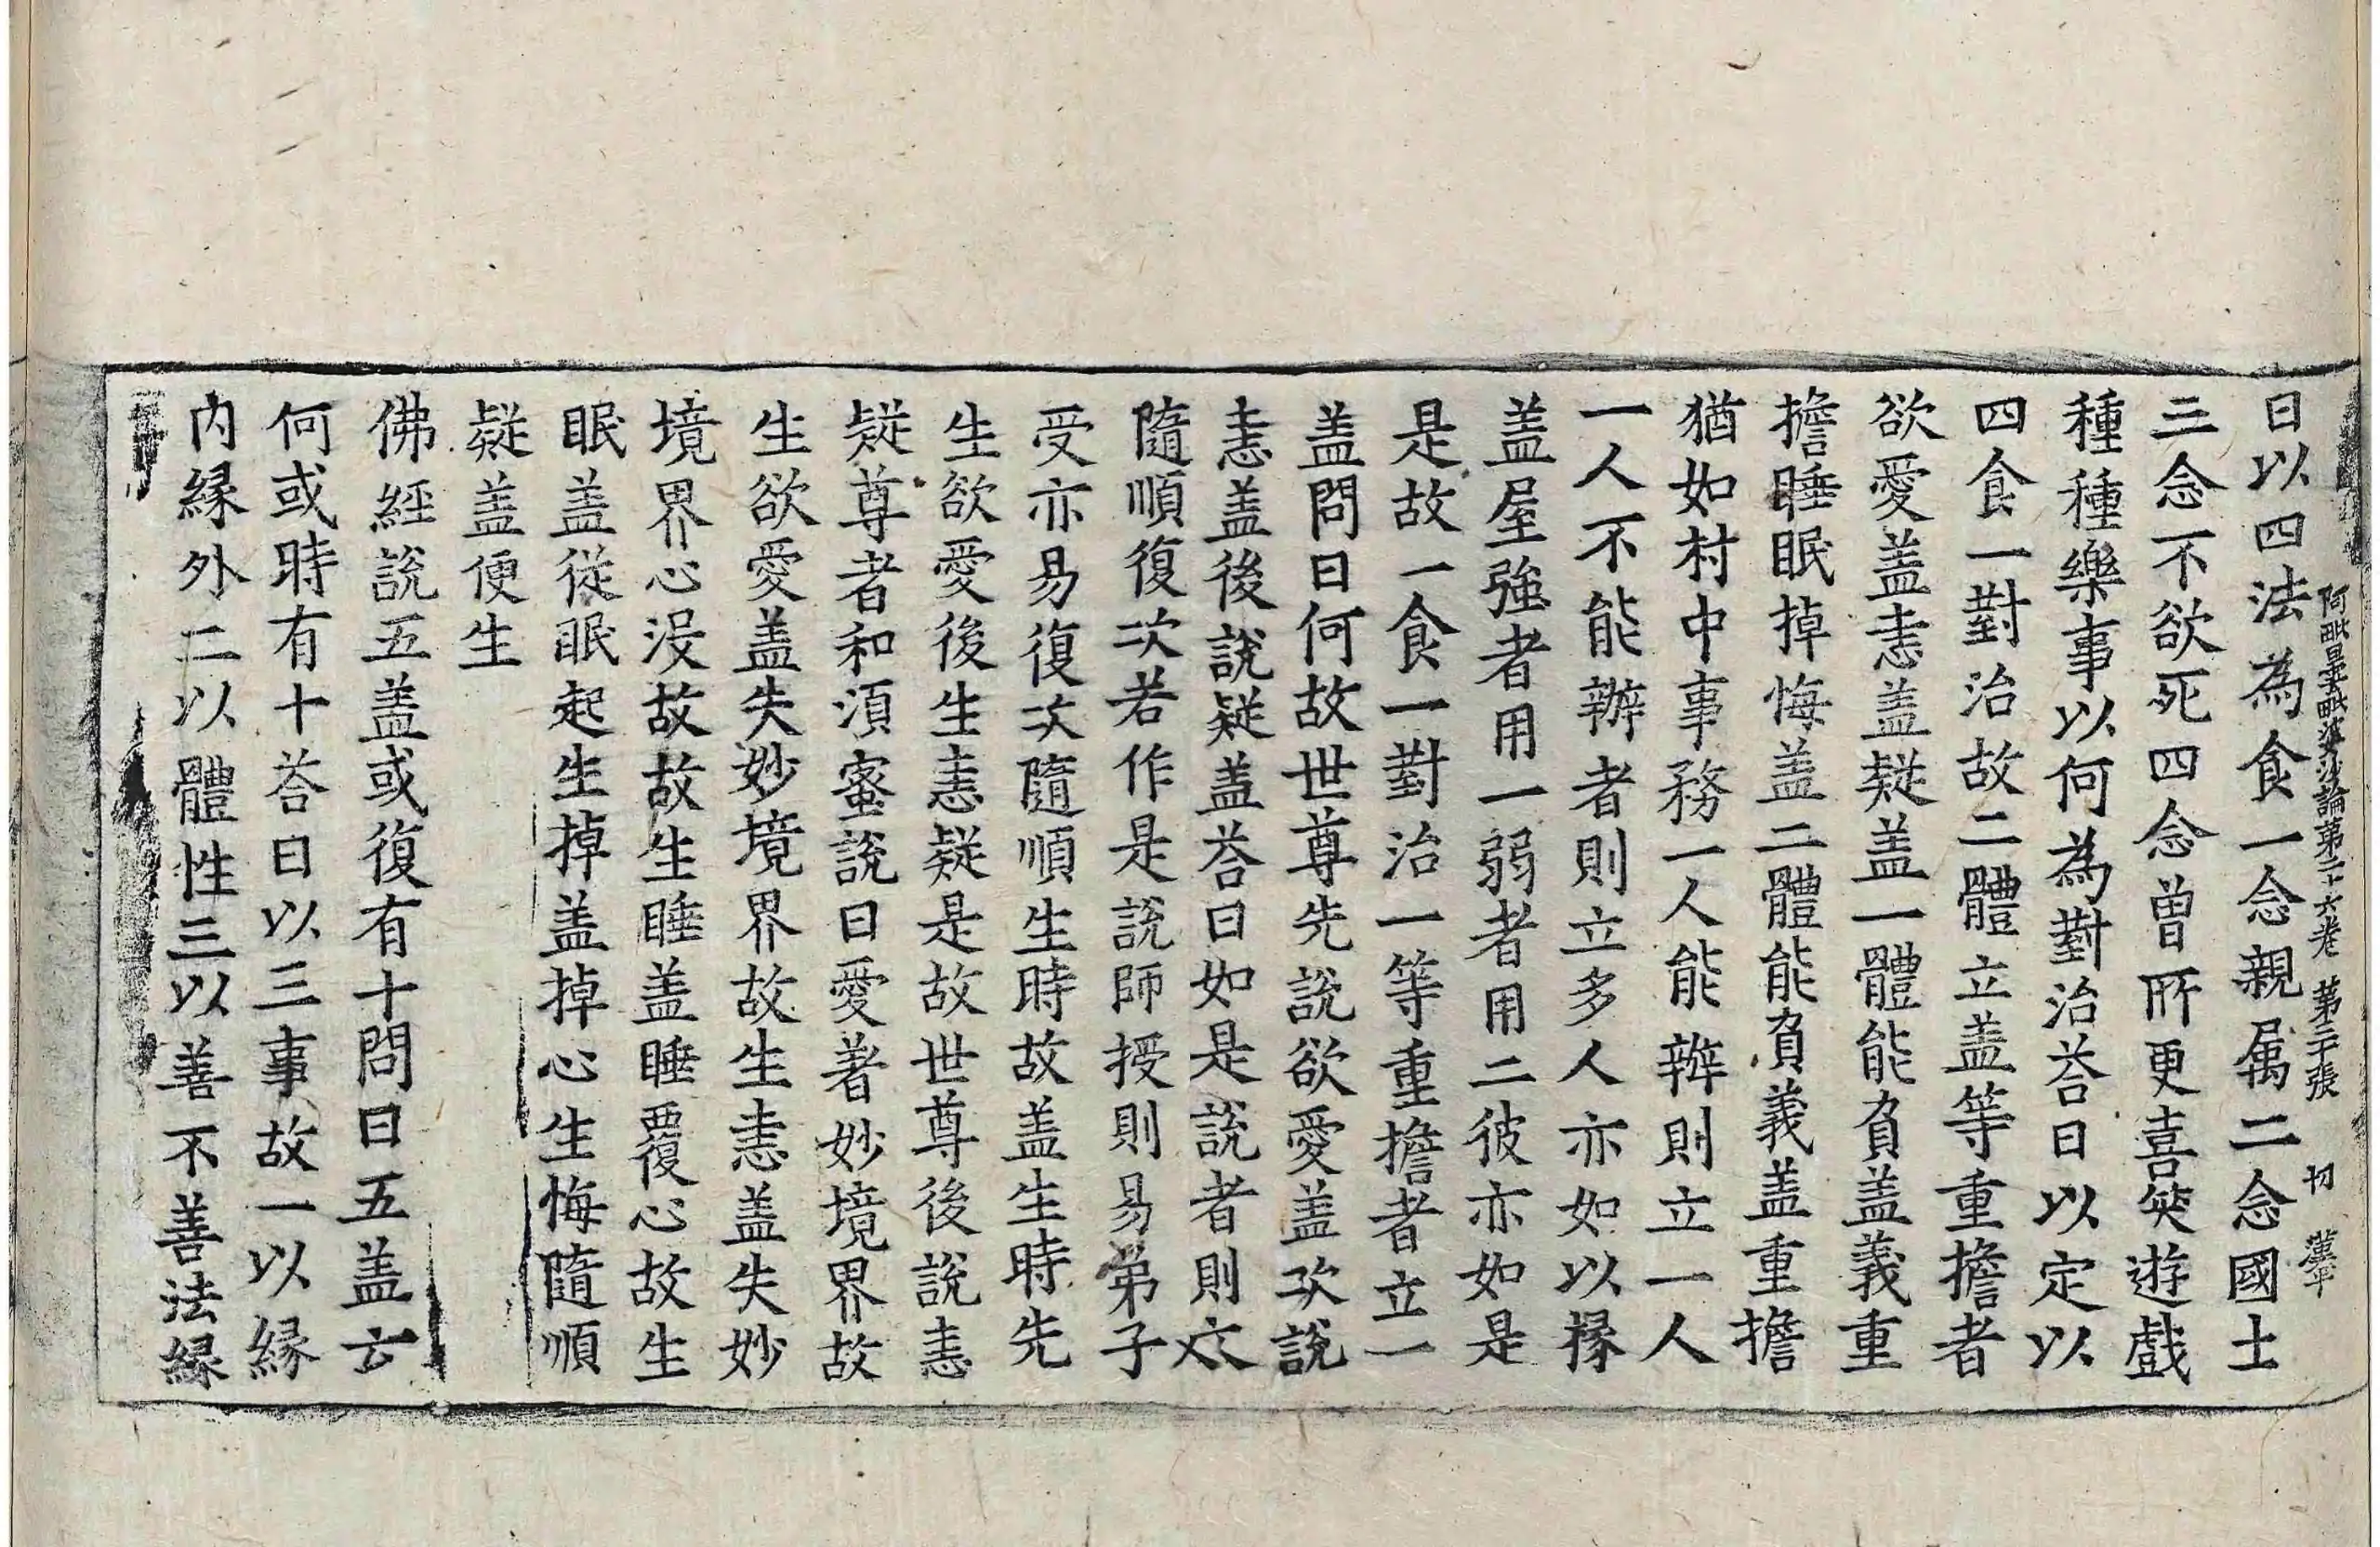 阿毗曇毗婆沙論第二十六卷　第二十張　切　漢平
曰以四法為食一念親属二念國土
三念不欲死四念曾所更喜笑遊戲
種種樂事以何為對治荅曰以定以
四食一對治故二體立盖等重擔者
欲愛盖恚盖疑盖一體能負盖義重
擔睡眠掉悔盖二體能負義盖重擔
猶如村中事務一人能辦則立一人
一人不能辦者則立多人亦如以椽
盖屋強者用一弱者用二彼亦如是
是故一食一對治一等重擔者立一
盖問曰何故世尊先說欲愛盖次說
恚盖後說疑盖荅曰如是說者則文
隨順復次若作是說師授則易弟子
受亦易復次隨順生時故盖生時先
生欲愛後生恚疑是故世尊後說恚
疑尊者和湏蜜說曰愛著妙境界故
生欲愛盖失妙境界故生恚盖失妙
境界心没故故生睡盖睡覆心故生
眠盖從眠起生掉盖掉心生悔隨順
疑盖便生
佛經說五盖或復有十問曰五盖云
何或時有十荅曰以三事故一以縁
内縁外二以體性三以善不善法縁